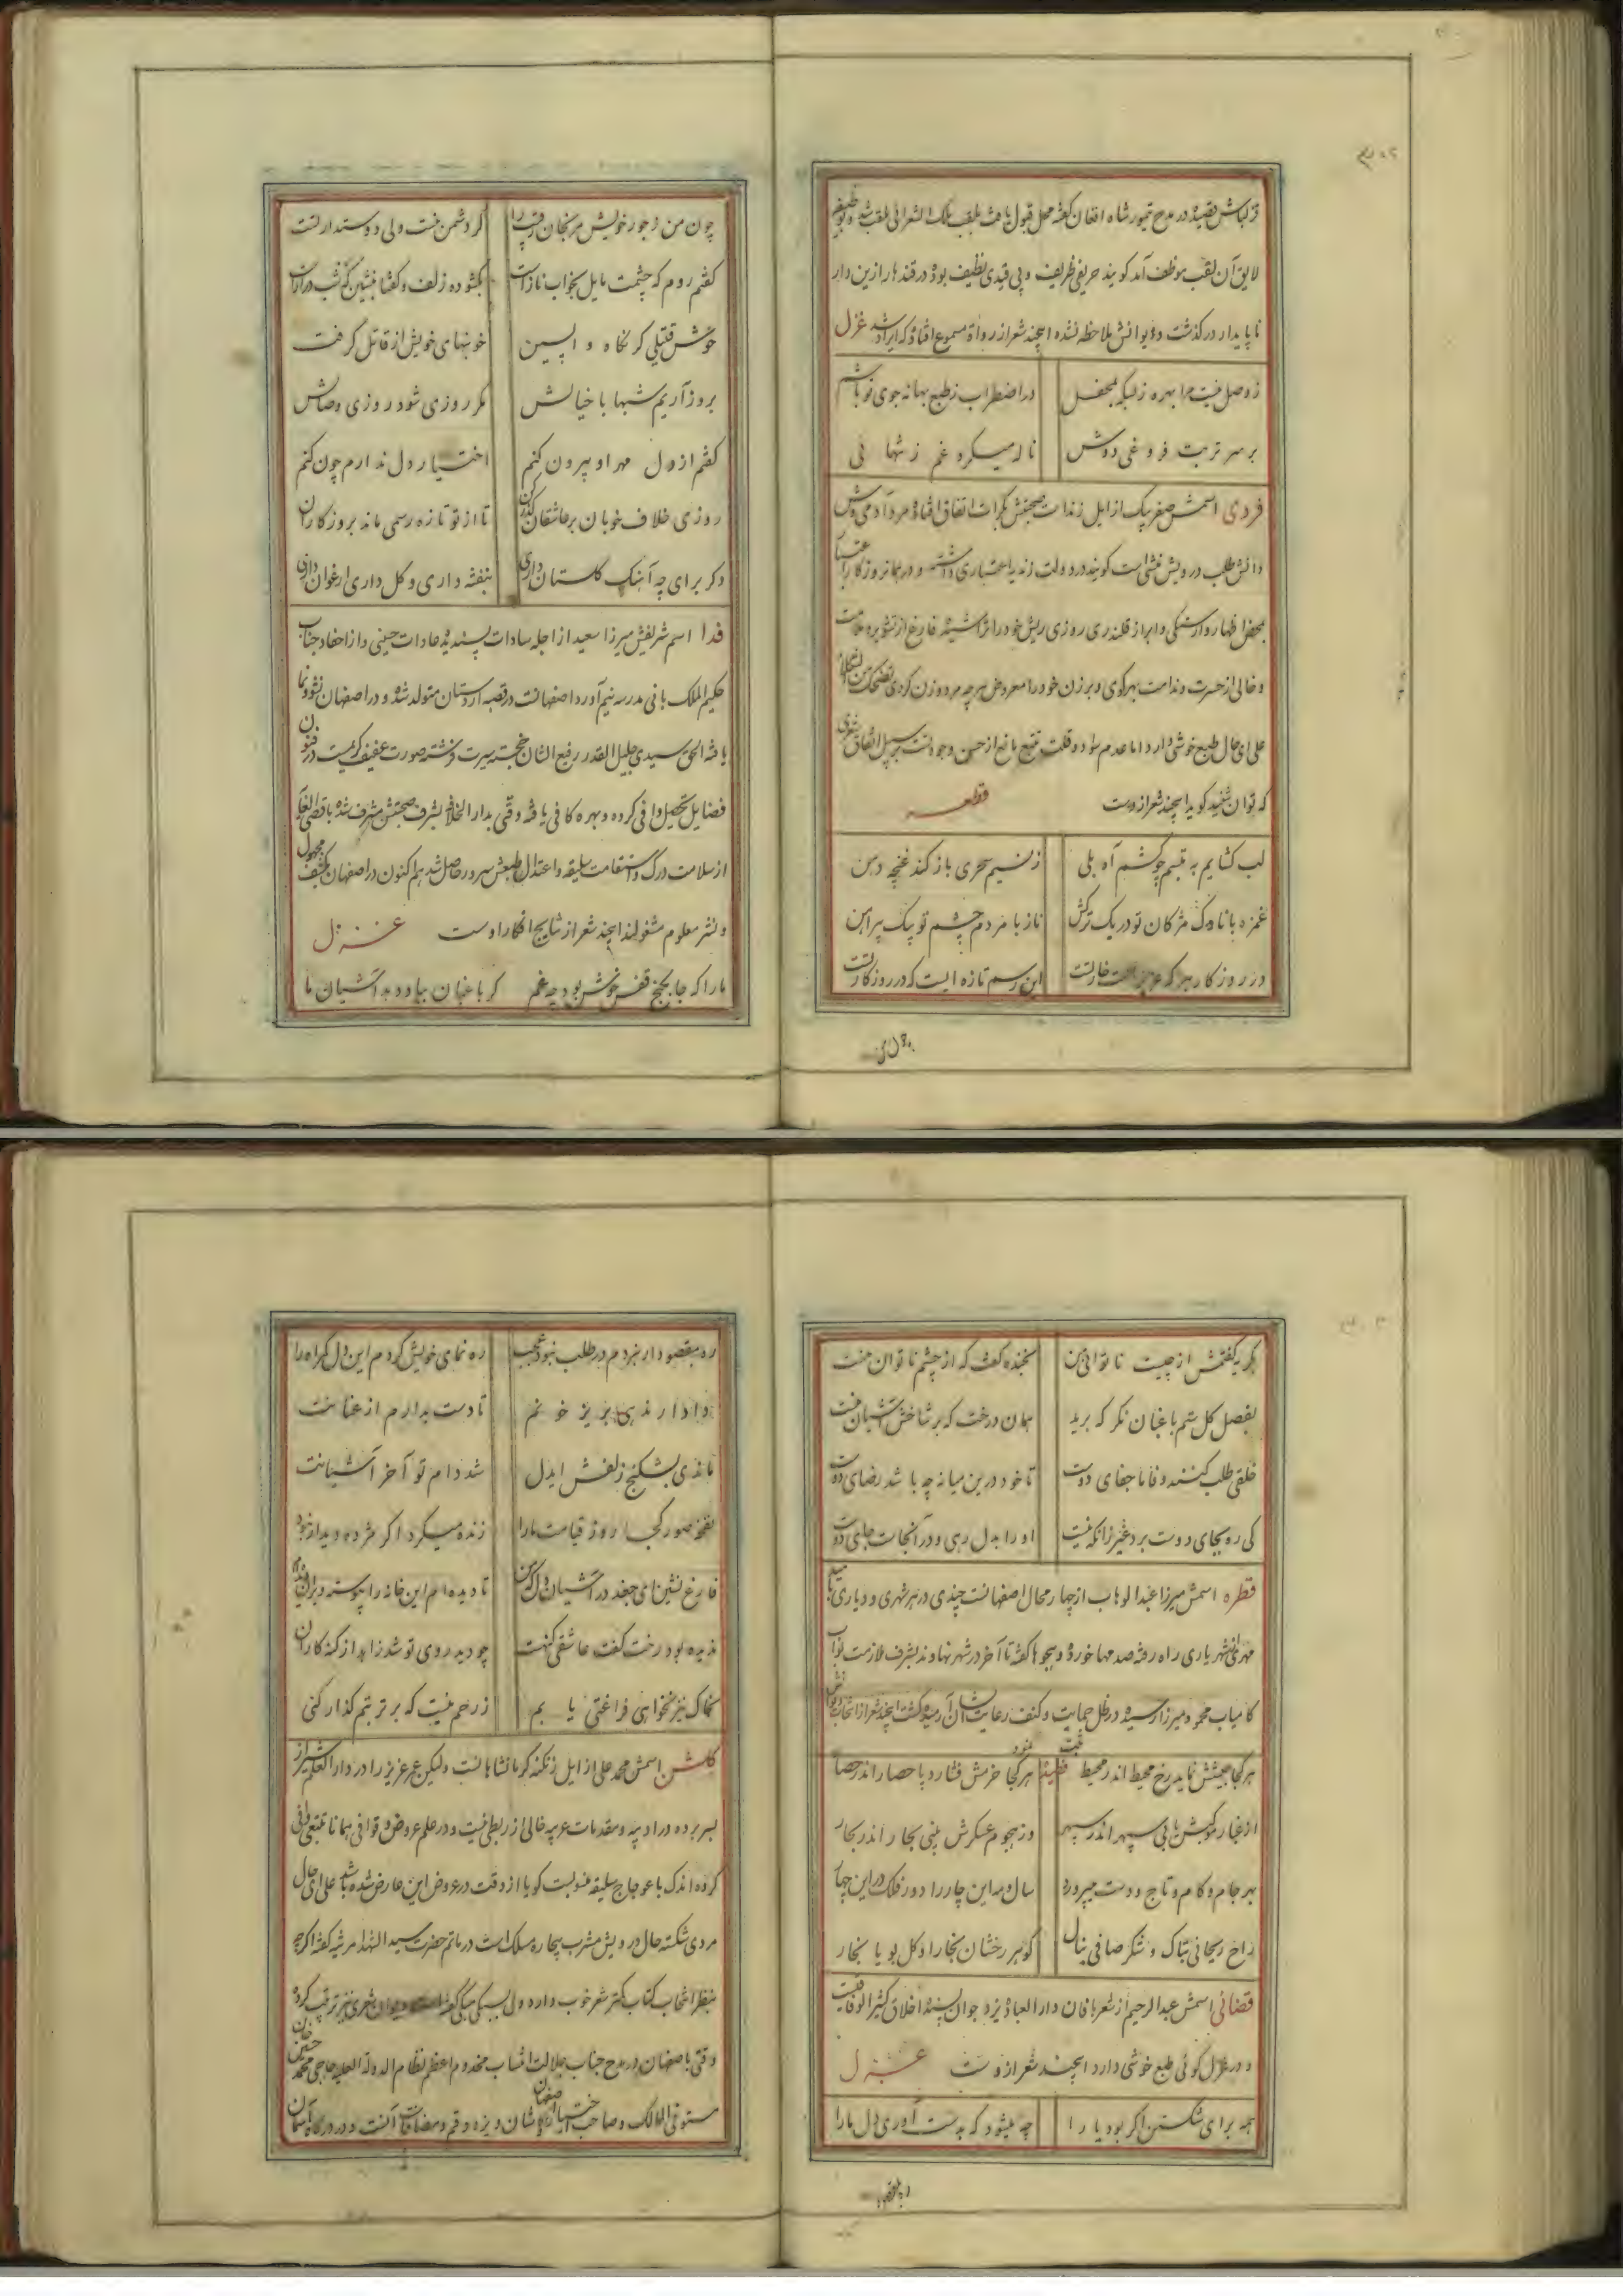 قزلباش قصیده در مدح تیمور شاه افغان گفته محل قبول یافت بلقب ملک الشعرائی ملقب شد و بوظیفه
لایق آن لقب موظف آمد گویند حریفی ظریف و بی قیدی نظیف بوده در قندهار ازین دار
ناپایدار درگذشت دیوانش ملاحظه نشده اینچند شعر از رواة مسموع افتاده که ایراد شد غزل
ز وصل نیست مرا بهره زانکه بمحفل در اضطراب ز طبع بهانه جوی تو باشم
بر سر تربت فروغی دوش ناله میکرد غم ز تنهائی
فردی اسمش صفر بیک از ایل زند است صحبتش بکرات اتفاق افتاده مرد آدمی وش
دانش طلب درویش منشی است گویند در دولت زندیه اعتباری داشته و در همان روزگار اعتبار
بمحض اظهار وارستگی و ابراز قلندری روزی ریش خود را تراشیده فارغ از تشویر ملامت
و خالی از حسرت و ندامت بهر کوی و برزن خود را معروض هر چه مرد و زن کردی
علی ای حال طبع خوشی دارد اما عدم سواد و قلت تتبع مانع از حسن وجودست بر سبیل اتفاق شعری
که توان شنید گوید اینچند شعر ازوست قطعه
لب گشایم به تبسم چو کشم آه بلی ز نسیم سحری باز کند غنچه دهن
غمزه با ناوک مژگان تو در یک ترکش ناز با مردم چشم تو بیک پیراهن
در روزگار هر که عزیز است خار تست این رسم تازه ایست که در روزگار تست
چون من ز جور خویش مرنجان رقیب را گر دشمن منست ولی دوستدار تست
گفتم روم که چشمت مایل بخواب ناز است بگشوده زلف و گفتا بنشین که شب دراز است
خوش قتیلی کز نگاه واپسین خونبهای خویش از قاتل گرفت
بروز آریم شبها با خیالش مگر روزی شود روزی وصالش
گفتم از دل مهر او بیرون کنم اختیار دل ندارم چون کنم
روزی خلاف خوبان بر عاشقان گذر کن تا از تو تازه رسمی ماند بروزگاران
دگر برای چه آهنگ گلستان داری بنفشه داری و گل داری ارغوان داری
فدا اسم شریفش میرزا سعید از اجله سادات پسندیده عادات حسینی و از احفاد جناب
حکیم الملک بانی مدرسه نیم آورد اصفهانست در قصبه اردستان متولد شده و در اصفهان نشو و نما
یافته الحق سیدی جلیل القدر رفیع الشأن خجسته سیرت فرشته صورت عفیف کریمیست در فنون
فضایل تحصیل وافی کرده و بهره کافی یافته وقتی بدار الخلافه بشرف صحبتش مشرف شده باقصی الغایه
از سلامت درک و استقامت سلیقه و اعتدال طبعش سرور حاصل شد هم اکنون در اصفهان بکشف مجهول
و نشر معلوم مشغولند اینچند شعر از نتایج افکار اوست غزل
ما را که جا بکنج قفس خوش بود چه غم گر باغبان بباد دهد آشیان ما
بگریه گفتمش از چیست ناتوانی من بخنده گفت که از چشم ناتوان منست
بفصل گل ستم باغبان نگر که برید همان درخت که بر شاخش آشیان منست
خلقی طلب کنند وفا ما جفای دوست تا خود درین میانه چه باشد رضای دوست
کی ره بجای دوست برد غیر زانکه نیست او را بدل رهی و در آنجاست جای دوست
قطره اسمش میرزا عبد الوهاب از چهار محال اصفهانست چندی در هر شهری و دیاری بامید
مهر شهریاری راه رفته صدمها خورده و هجوها گفته تا آخر در شهر نهاوند بشرف ملازمت نواب
کامیاب محمود میرزا رسیده در ظل حمایت و کنف رعایت ایشان آرمیده گشت اینچند شعر از انتخاب دیوانش ثبت نمود
هر کجا جیشش نماید رخ محیط اندر محیط قصیده هر کجا خرمش فشارد پا حصار اندر حصار
از غبار موکبش یابی سپهر اندر سپهر وز هجوم عسکرش بینی بحار اندر بحار
بهر جام و کام و تاج و دست میپرورد سال و مه این چار را دور فلک در این چهار
راح ریحانی بتاک و شکر صافی بنال گوهر رخشان بخارا و گل بویا بخار
قضائی اسمش عبد الرحیم از شعربافان دار العباده یزد جوان پسندیده اخلاق کثیر الوفاقیست
و در غزل گوئی طبع خوشی دارد اینچند شعر ازوست غزل
همه برای شکستن اگر بود یارا چه میشود که بدست آوری دل ما را
ره بمقصود ار نبردم در طلب نبود عجب ره نمای خویش کردم این دل گمراه را
دادار ندهی بریز خونم تا دست بدارم از عنانت
ماندی بشکنج زلفش ایدل شد دام تو آخر آشیانت
نفخه صور کجا روز قیامت ما را زنده میکرد اگر مژده دیدار نبود
فارغ نشین ای جغد در آشیان دل که من تا دیده ام این خانه را پیوسته ویران دیده ام
ندیده بود رخت گفت عاشقی گنهست چو دید روی تو شد زاهد از گنه کاران
بخاک نیز نخواهی فراغتی یابم ز رحم نیست که بر تربتم گذار کنی
گلشن اسمش محمد علی از ایل زنگنه کرمانشاهانست ولیکن عمر عزیز را در دار العلم شیراز
بسر برده در ادبیه و مقدمات عربیه خالی از ربطی نیست و در علم عروض و قوافی همانا تتبعی وافی
کرده اندک باعوجاج سلیقه منسوبست گویا از دقت در عروض این عارض شده باشد علی ای حال
مردی شکسته حال درویش مشرب بیچاره مسلک است در ماتم حضرت سید الشهدا مرثیه گفته اگرچه
بنظر انتخاب کتاب کمتر شعر خوب دارد ولی دیوان شعری نیز ترتیب کرده
وقتی باصفهان در مدح جناب جلالت انتساب مخدوم اعظم نظام الدوله العلیه حاجی محمد حسین خان
مستوفی الممالک و صاحب اختیار اصفهان و کاشان و یزد و قم و مضافات آنست و در درگاه آسمان